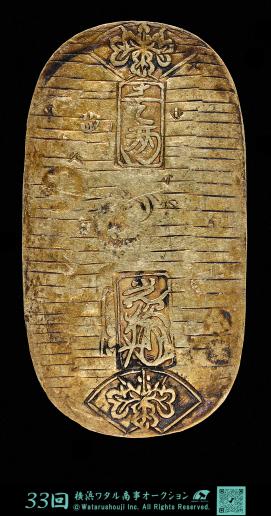 壹两
光次
33回 横浜ワタル商事オークション
© Watarushouji Inc. All Rights Reserved.